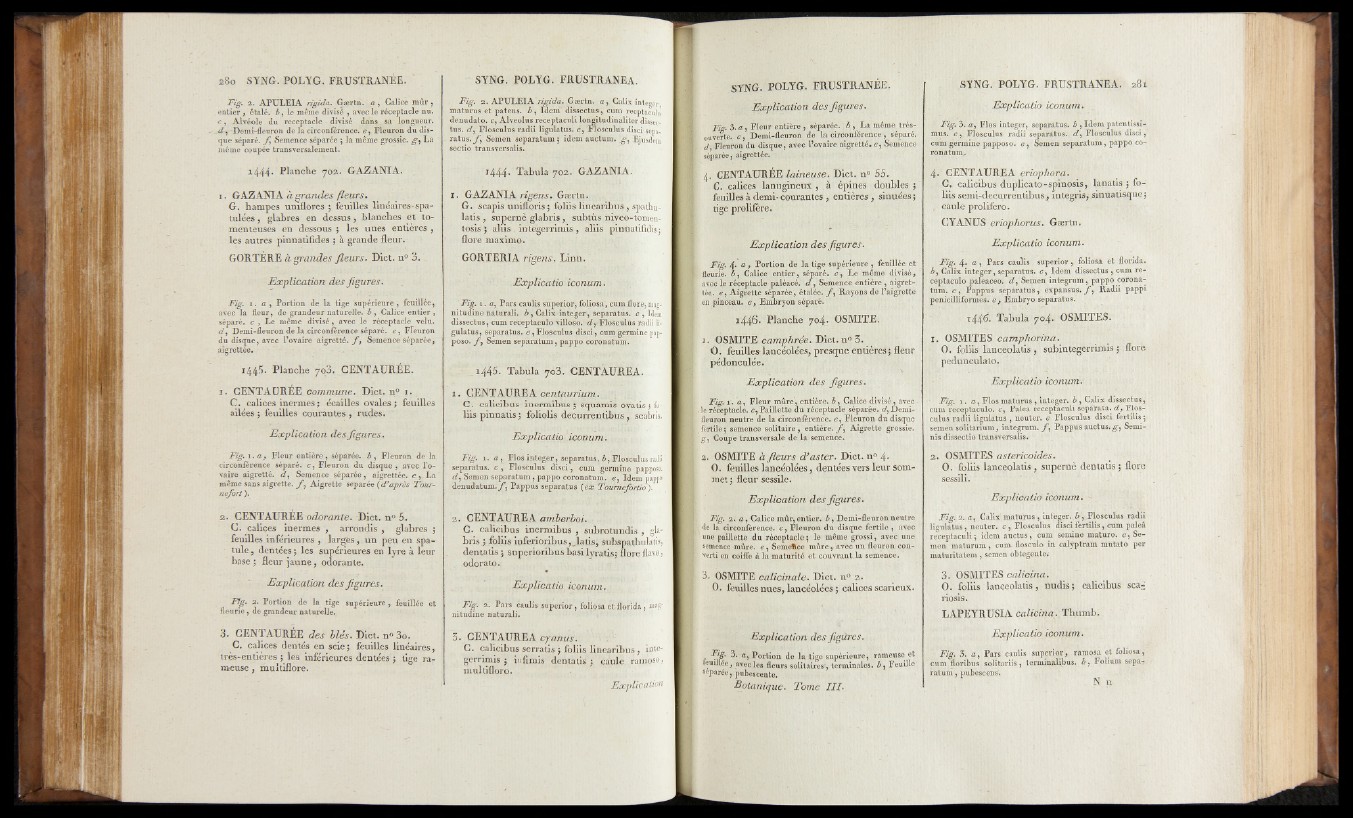 280 SYNG. POLYG. FRUSTRANÉE.
Fig. 2. APULEIA rigida. Gærtn. a, Calice mûr,
entier, étalé. b, le même divisé, avec le réceptacle nu.
c, Alvéole du receptacle divisé dans sa longueur.
d, Demi-fleuron de la circonférence. e, Fleuron du dis-
que séparé. f, Semence séparée; la même grossie. g, La
même coupée transversalement.
1444. Planche 702. GAZANIA.
1. GAZANIA à grandes fleurs.
G. hampes uniflores; feuilles linéaires-spa-
tulées, glabres en dessus, blanches et to-
menteuses en dessous; les unes entières,
les autres pinnatifides; à grande fleur.
GORTÈRE à grandes fleurs. Dict. n° 3.
Explication des figures.
Fig. 1. a, Portion de la tige supérieure, feuillée,
avec la fleur, de grandeur naturelle. b, Calice entier,
séparé. c, Le même divisé, avec le réceptacle velu.
d, Demi-fleuron de la circonférence séparé. e, Fleuron
du disque, avec l'ovaire aigretté. f, Semence séparée,
aigrettée.
1445. Planche 703. CENTAURÉE.
1. CENTAURÉE commune. Dict. n° 1.
C. calices inermes; écailles ovales; feuilles
ailées; feuilles courantes, rudes.
Explication des figures.
Fig. 1. a, Fleur entière, séparée. b, Fleuron de la
circonférence séparé. c, Fleuron du disque, avec l'o-
vaire aigretté. d, Semence séparée, aigrettée. e, La
même sans aigrette. f, Aigrette séparée (d'après Tour-
nefort).
2. CENTAURÉE odorante. Dict. n° 5.
C. calices inermes, arrondis, glabres;
feuilles inférieures, larges, un peu en spa-
tule, dentées; les supérieures en lyre à leur
base; fleur jaune, odorante.
Explication des figures.
Fig. 2. Portion de la tige supérieure, feuillée et
fleurie, de grandeur naturelle.
3. CENTAURÉE des blés. Dict. n° 30.
C. calices dentés en scie; feuilles linéaires,
très-entières; les inférieures dentées; tige ra-
meuse, multiflore.
SYNG. POLYG. FRUSTRANEA.
Fig. 2. APULEIA rigida. Gærtn. a, Calix integer,
maturus et patens. b, Idem dissectus, cum receptaculo
denudato. c, Alveolus receptaculi longitudinaliter dissec-
tus. d, Flosculus radii ligulatus. e, Flosculus disci sepa-
ratus. f, Semen separatum; idem auctum. g, Ejusdem
sectio transversalis.
1444. Tabula 702. GAZANIA.
1. GAZANIA rigens. Gærtn.
G. scapis unifloris; foliis linearibus, spathu-
latis, supernè glabris, subtùs niveo-tomen-
tosis; aliis integerrimis, aliis pinnatifidis;
flore maximo.
GORTERIA rigens. Linn.
Explicatio iconum.
Fig. 1. a, Pars caulis superior, foliosa, cum flore, mag-
nitudine naturali. b, Calix integer, separatus. c, Idem
dissectus, cum receptaculo villoso. d, Flosculus radii li-
gulatus, separatus. e, Flosculus disci, cum germine pap-
poso. f, Semen separatum, pappo coronatum.
1445. Tabula 703. CENTAUREA.
1. CENTAUREA centaurium.
C. calicibus inermibus; squamis ovatis; fo-
liis pinnatis; foliolis decurrentibus, scabris.
Explicatio iconum.
Fig. 1. a, Flos integer, separatus. b, Flosculus radii
separatus. c, Flosculus disci, cum germine papposo.
d, Semen separatum, pappo coronatum. e, Idem pappo
denudatum. f, Pappus separatus (ex Tournefortio).
2. CENTAUREA amberboi.
C. calicibus inermibus, subrotundis, gla-
bris; foliis inferioribus, latis, subspathulatis,
dentatis; superioribus basi lyratis; flore flavo,
odorato.
Explicatio iconum.
Fig. 2. Pars caulis superior, foliosa et florida, mag-
nitudine naturali.
3. CENTAUREA cyanus.
C. calicibus serratis; foliis linearibus, inte-
gerrimis; infimis dentatis; caule ramoso,
multifloro.
Explication
SYNG. POLYG. FRUSTRANÉE.
Explication des figures.
Fig. 3. a, Fleur entière, séparée. b, La même très-
ouverte. c, Demi-fleuron de la circonférence, séparé.
d, Fleuron du disque, avec l'ovaire aigretté. e, Semence
séparée, aigrettée.
4. CENTAURÉE laineuse. Dict. n° 55.
C. calices lanugineux, à épines doubles;
feuilles à demi-courantes, entières, sinuées;
tige prolifère.
Explication des figures.
Fig. 4. a, Portion de la tige supérieure, feuillée et
fleurie. b, Calice entier, séparé. c, Le même divisé,
avec le réceptacle paléacé. d, Semence entière, aigret-
tée. e, Aigrette séparée, étalée. f, Rayons de l'aigrette
en pinceau. g, Embryon séparé.
1446. Planche 704. OSMITE.
1. OSMITE camphrée. Dict. n° 3.
O. feuilles lancéolées, presque entières; fleur
pédonculée.
Explication des figures.
Fig. 1. a, Fleur mûre, entière. b, Calice divisé, avec
le réceptacle. c, Paillette du réceptacle séparée. d, Demi-
fleuron neutre de la circonférence. e, Fleuron du disque
fertile; semence solitaire, entière. f, Aigrette grossie.
g, Coupe transversale de la semence.
2. OSMITE à fleurs d'aster. Dict. n° 4.
O. feuilles lancéolées, dentées vers leur som-
met; fleur sessile.
Explication des figures.
Fig. 2. a, Calice mûr, entier. b, Demi-fleuron neutre
de la circonférence. c, Fleuron du disque fertile, avec
une paillette du réceptacle; le même grossi, avec une
semence mûre. e, Semence mûre, avec un fleuron con-
verti en coiffe à la maturité et couvrant la semence.
3. OSMITE calicinale. Dict. n° 2.
O. feuilles nues, lancéolées; calices scarieux.
Explication des figures.
Fig. 3. a, Portion de la tige supérieure, rameuse et
feuillée, avec les fleurs solitaires, terminales. b, Feuille
séparée, pubescente.
Botanique. Tome III.
SYNG. POLYG. FRUSTRANEA. 281
Explicatio iconum.
Fig. 3. a, Flos integer, separatus. b, Idem patentissi-
mus. c, Flosculus radii separatus. d, Flosculus disci,
cum germine papposo. e, Semen separatum, pappo co-
ronatum.
4. CENTAUREA eriophora.
C. calicibus duplicato-spinosis, lanatis; fo-
liis semi-decurrentibus, integris, sinuatisque;
caule prolifero.
CYANUS eriophorus. Gærtn.
Explicatio iconum.
Fig. 4. a, Pars caulis superior, foliosa et florida.
b, Calix integer, separatus. c, Idem dissectus, cum re-
ceptaculo paleaceo. d, Semen integrum, pappo corona-
tum. e, Pappus separatus, expansus. f, Radii pappi
penicilliformes. g, Embryo separatus.
1446. Tabula 704. OSMITES.
1. OSMITES camphorina.
O. foliis lanceolatis, subintegerrimis; flore
pedunculato.
Explicatio iconum.
Fig. 1. a, Flos maturus, integer. b, Calix dissectus,
cum receptaculo. c, Palea receptaculi separata. d, Flos-
culus radii ligulatus, neuter. e Flosculus disci fertilis;
semen solitarium, integrum. f, Pappus auctus. g, Semi-
nis dissectio transversalis.
2. OSMITES astericoides.
O. foliis lanceolatis, supernè dentatis; flore
sessili.
Explicatio iconum.
Fig. 2. a, Calix maturus, integer. b, Flosculus radii
ligulatus, neuter. c, Flosculus disci fertilis, cum paleâ
receptaculi; idem auctus, cum semine maturo. e, Se-
men maturum, cum flosculo in calyptram mutato per
maturitatem, semen obtegente.
3. OSMITES calicina.
O. foliis lanceolatis, nudis; calicibus sca-
riosis.
LAPEYRUSIA calicina. Thumb.
Explicatio iconum.
Fig. 3. a, Pars caulis superior, ramosa et foliosa,
cum floribus solitariis, terminalibus. b, Folium sepa-
ratum, pubescens.
N n